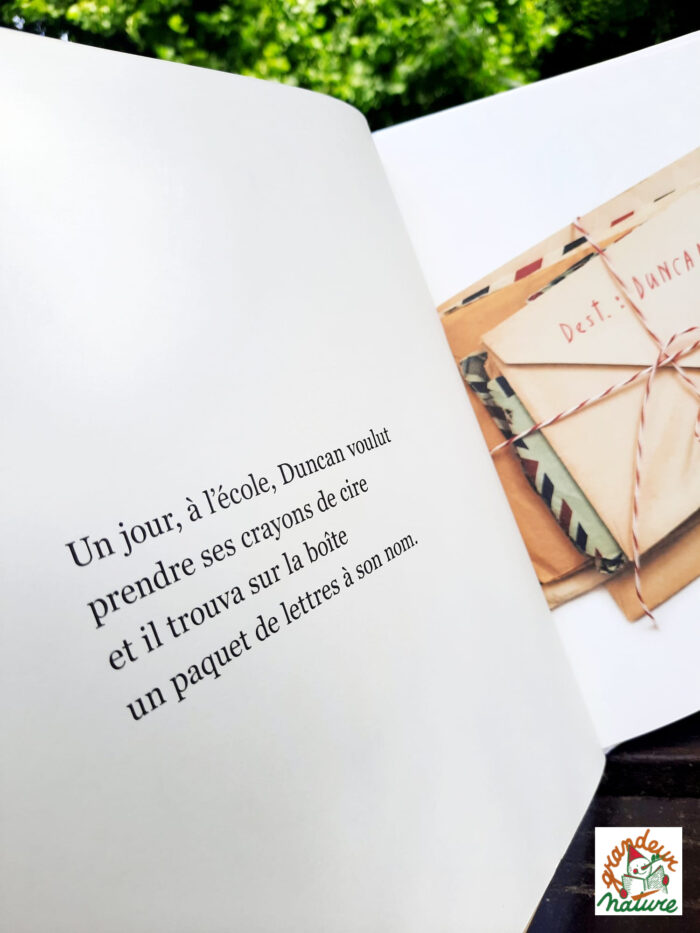 Un jour, à l'école, Duncan voulut
prendre ses crayons de cire
et il trouva sur la boîte
un paquet de lettres à son nom.
Dest. : DUNCAN
grandeur
nature